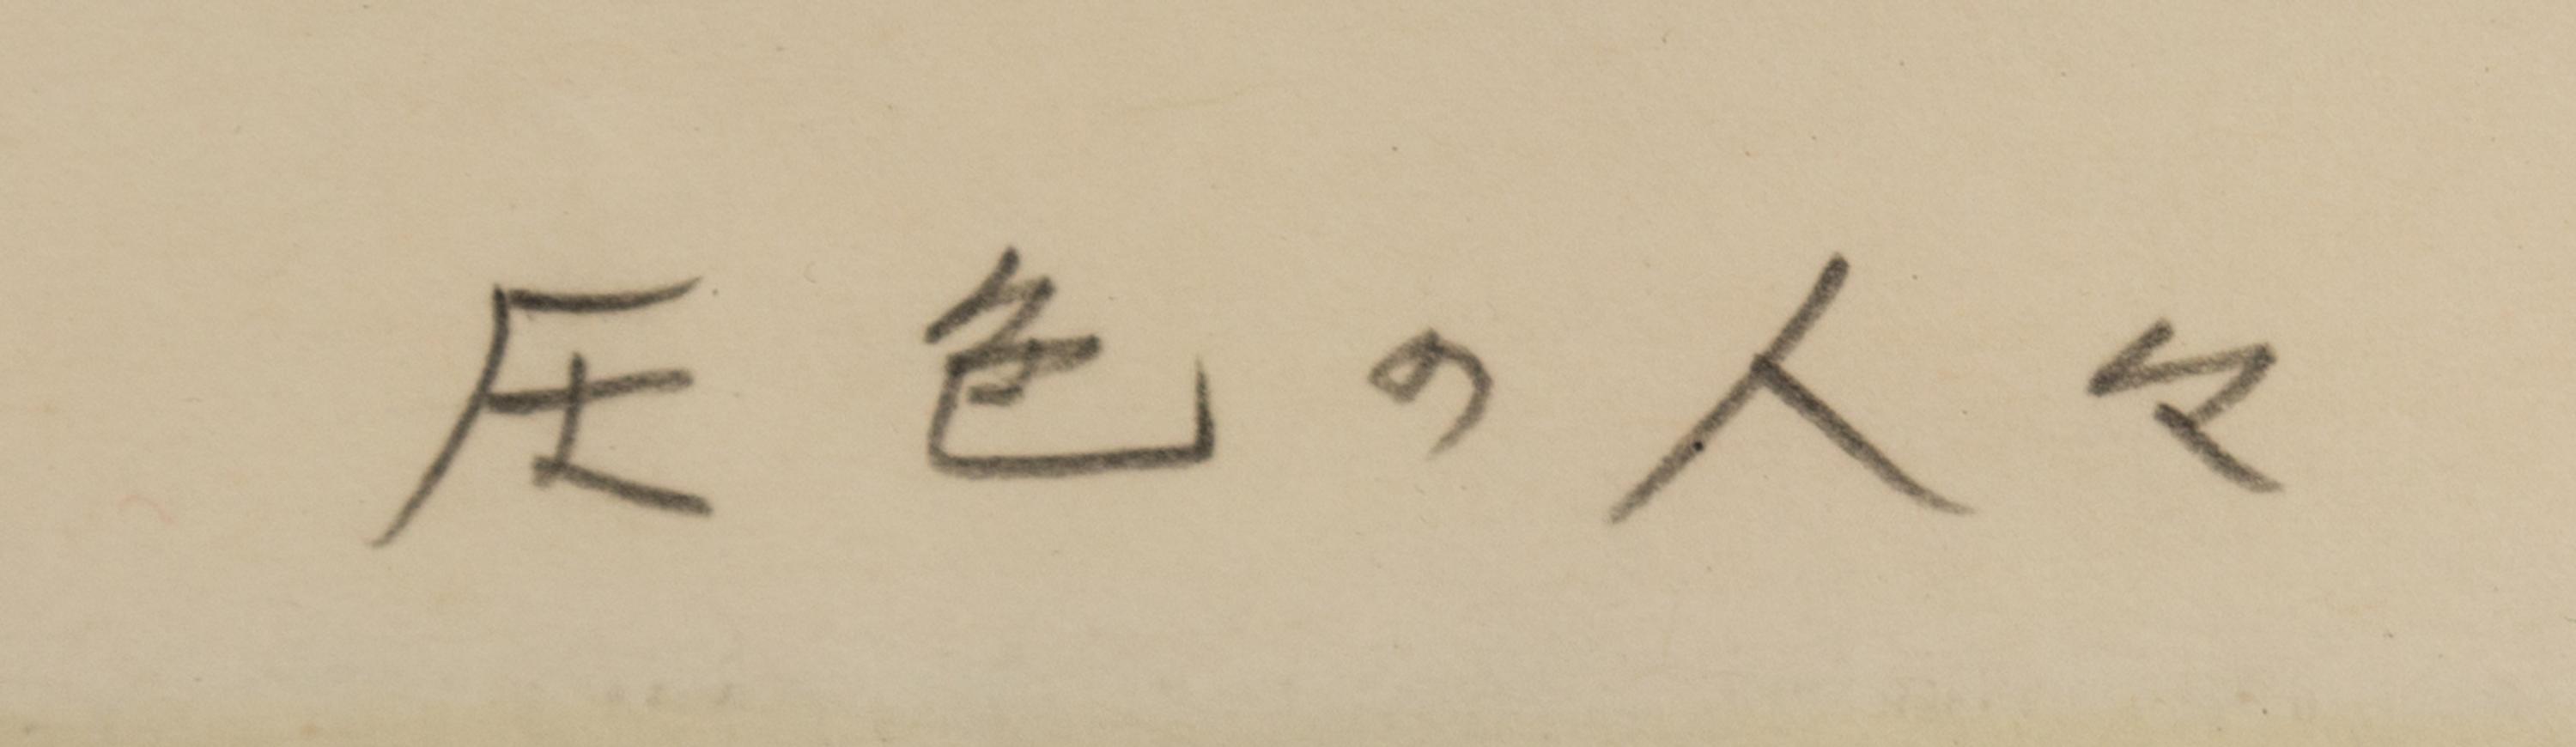 圧色の人々